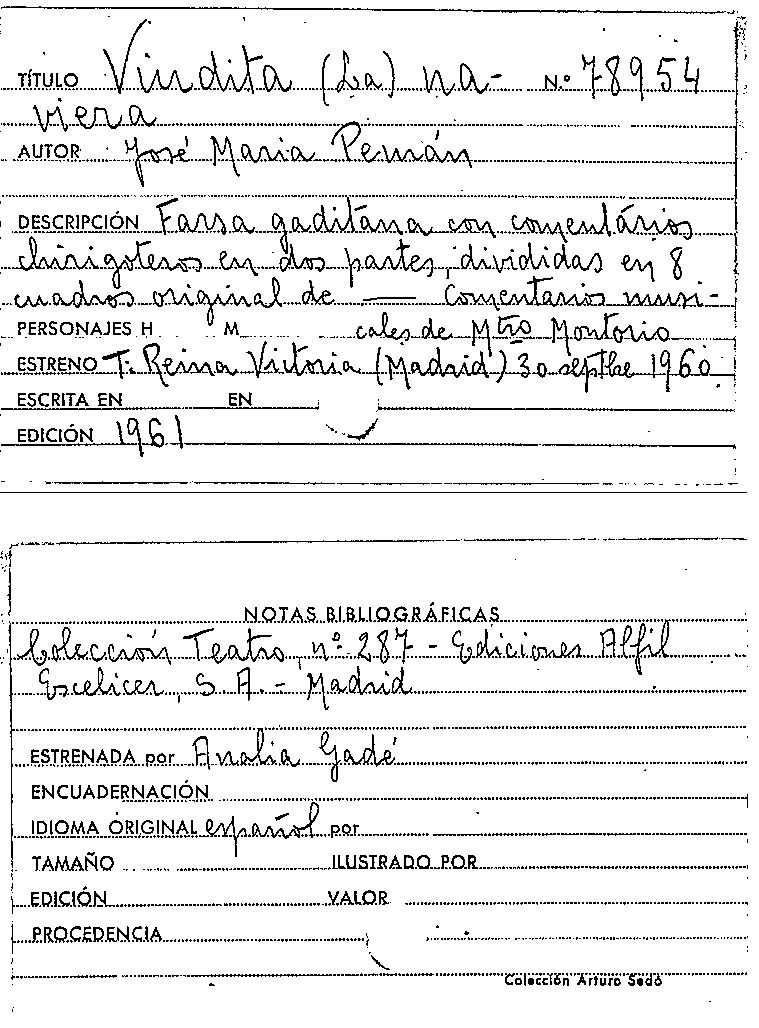 TÍTULO Vindita (La) na- N.º 78954
viera
AUTOR José Maria Pemán
DESCRIPCIÓN Farsa gaditana con comentários
chirigoteros en dos partes, divididas en 8
cuadros original de — Comentarios musi-
PERSONAJES H M cales de Mtro Montorio
ESTRENO T. Reina Victoria (Madrid) 30 septbre 1960
ESCRITA EN EN
EDICIÓN 1961
NOTAS BIBLIOGRÁFICAS
Colección Teatro, nº 287 - Ediciones Alfil
Escelicer, S. A. - Madrid
ESTRENADA por Analia Gadé
ENCUADERNACIÓN
IDIOMA ORIGINAL español por
TAMAÑO ILUSTRADO POR
EDICIÓN VALOR
PROCEDENCIA
Colección Arturo Sedó